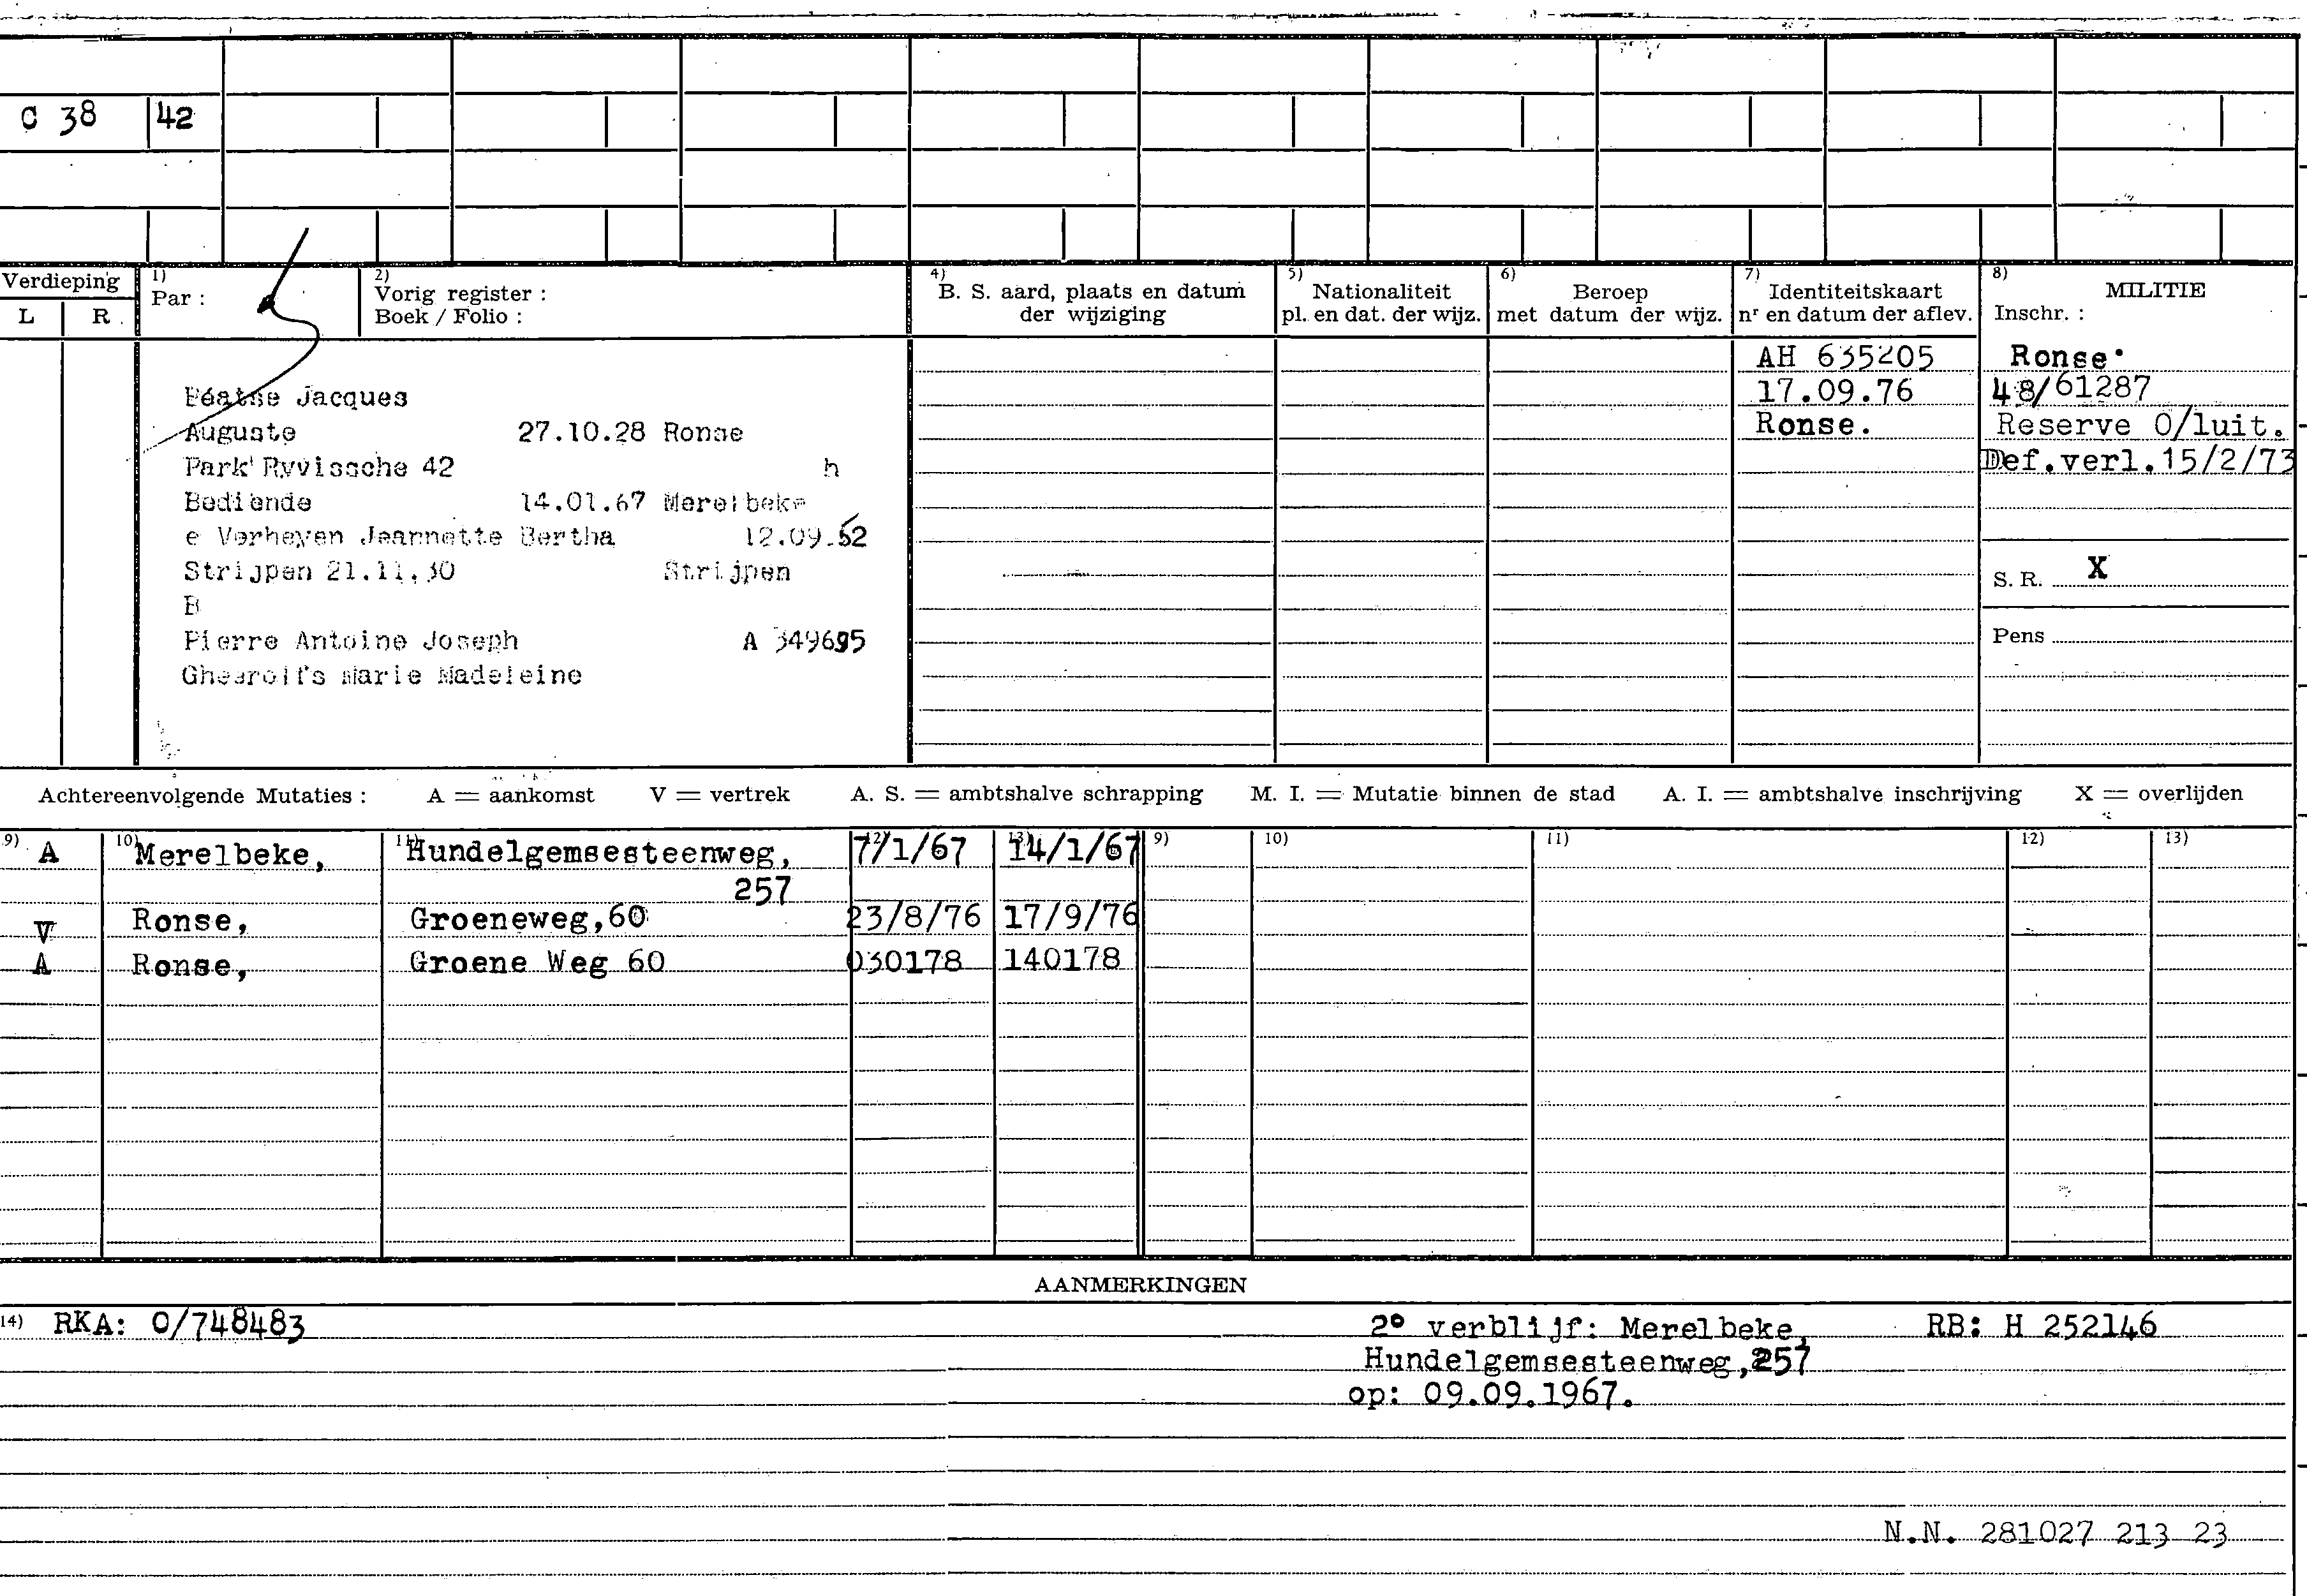 C 38 42
Verdieping
L R
1) Par :
2) Vorig register :
Boek / Folio :
4) B. S. aard, plaats en datum
der wijziging
5) Nationaliteit
pl. en dat. der wijz.
6) Beroep
met datum der wijz.
7) Identiteitskaart
nr en datum der aflev.
8) MILITIE
Inschr. :
Jacques
Auguste 27.10.28 Ronse
Park Ryvissche 42 h
Bediende 14.01.67 Merelbeke
e Verheyen Jeannette Bertha 12.09.52
Strijpen 21.11.30 Strijpen
B
Pierre Antoine Joseph A 349695
Gheerolfs Marie Madeleine
AH 635205
17.09.76
Ronse.
Ronse
48/61287
Reserve O/luit.
Def.verl.15/2/73
S. R. X
Pens
Achtereenvolgende Mutaties : A = aankomst V = vertrek A. S. = ambtshalve schrapping M. I. = Mutatie binnen de stad A. I. = ambtshalve inschrijving X = overlijden
9) 10) 11) 12) 13) 9) 10) 11) 12) 13)
A Merelbeke, Hundelgemsesteenweg, 7/1/67 14/1/67
257
V Ronse, Groeneweg,60 23/8/76 17/9/76
A Ronse, Groene Weg 60 030178 140178
AANMERKINGEN
14) RKA: O/748483 2° verblijf: Merelbeke, RB: H 252146
Hundelgemsesteenweg,257
op: 09.09.1967.
N.N. 281027 213 23